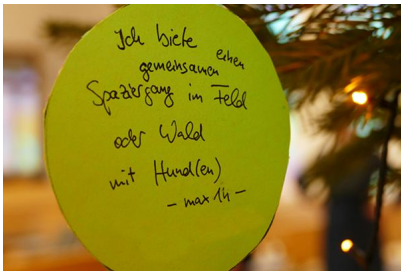 Ich biete
einen
gemeinsamen
Spaziergang im Feld
oder Wald
mit Hund(en)
- max 1h -